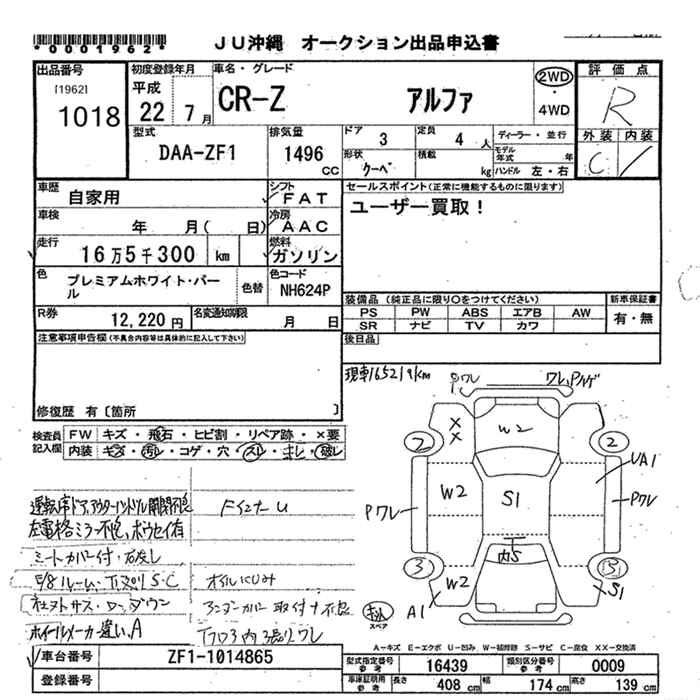 *0001962*
JU沖縄 オークション出品申込書
出品番号 [1962] 1018
初度登録年月 平成 22 7月
車名・グレード CR-Z アルファ
2WD ・ 4WD
評価点 R
外装 内装
C
型式 DAA-ZF1
排気量 1496 CC
ドア 3
定員 4 人
形状 クーペ
積載 kg
ディーラー・並行
モデル年式 年
ハンドル 左・右
車歴 自家用
シフト FAT
車検 年 月( 日)
冷房 AAC
走行 16万5千300 km
燃料 ガソリン
色 プレミアムホワイト・パール
色替
色コード NH624P
R券 12,220円
名変通知期限 月 日
セールスポイント(正常に機能するものに限ります)
ユーザー買取!
装備品(純正品に限り〇をつけてください)
新車保証書
PS PW ABS エアB AW
有・無
SR ナビ TV カワ
後日品
注意事項申告欄(不具合内容等は具体的に記入して下さい)
修復歴 有〔箇所 〕
現車165219km
検査員記入欄
FW キズ・飛石・ヒビ割・リペア跡・×要
内装 キズ・汚レ・コゲ・穴・スレ・キレ・破レ
運転席ドアアウターハンドル開閉不良
左電格ミラー不良、ホウセイ有
シートカバー付・
ホイールメーカー違い、A
FインナーU
オイルにじみ
アンダーカバー取付不良
Pワレ
W2
W2
S1
UA1
Pワレ
Pワレ
内S
W2
A1
S1
スペア
A=キズ E=エクボ U=凹み W=補修跡 S=サビ C=腐食 XX=交換済
車台番号 ZF1-1014865
登録番号
型式指定番号 参考 16439
類別区分番号 参考 0009
車庫証明用 参考 長さ 408 cm 幅 174 cm 高さ 139 cm